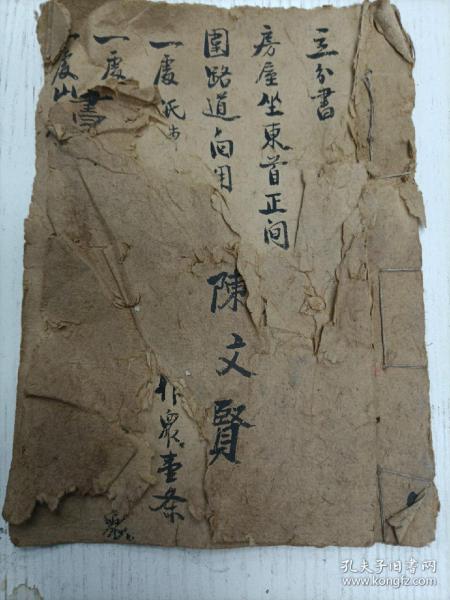 立分書
房屋坐東首正间
園路道向用
陳文賢
一處
作眾壹条
一處
書
一處山
孔夫子旧书网
www.kongfz.com